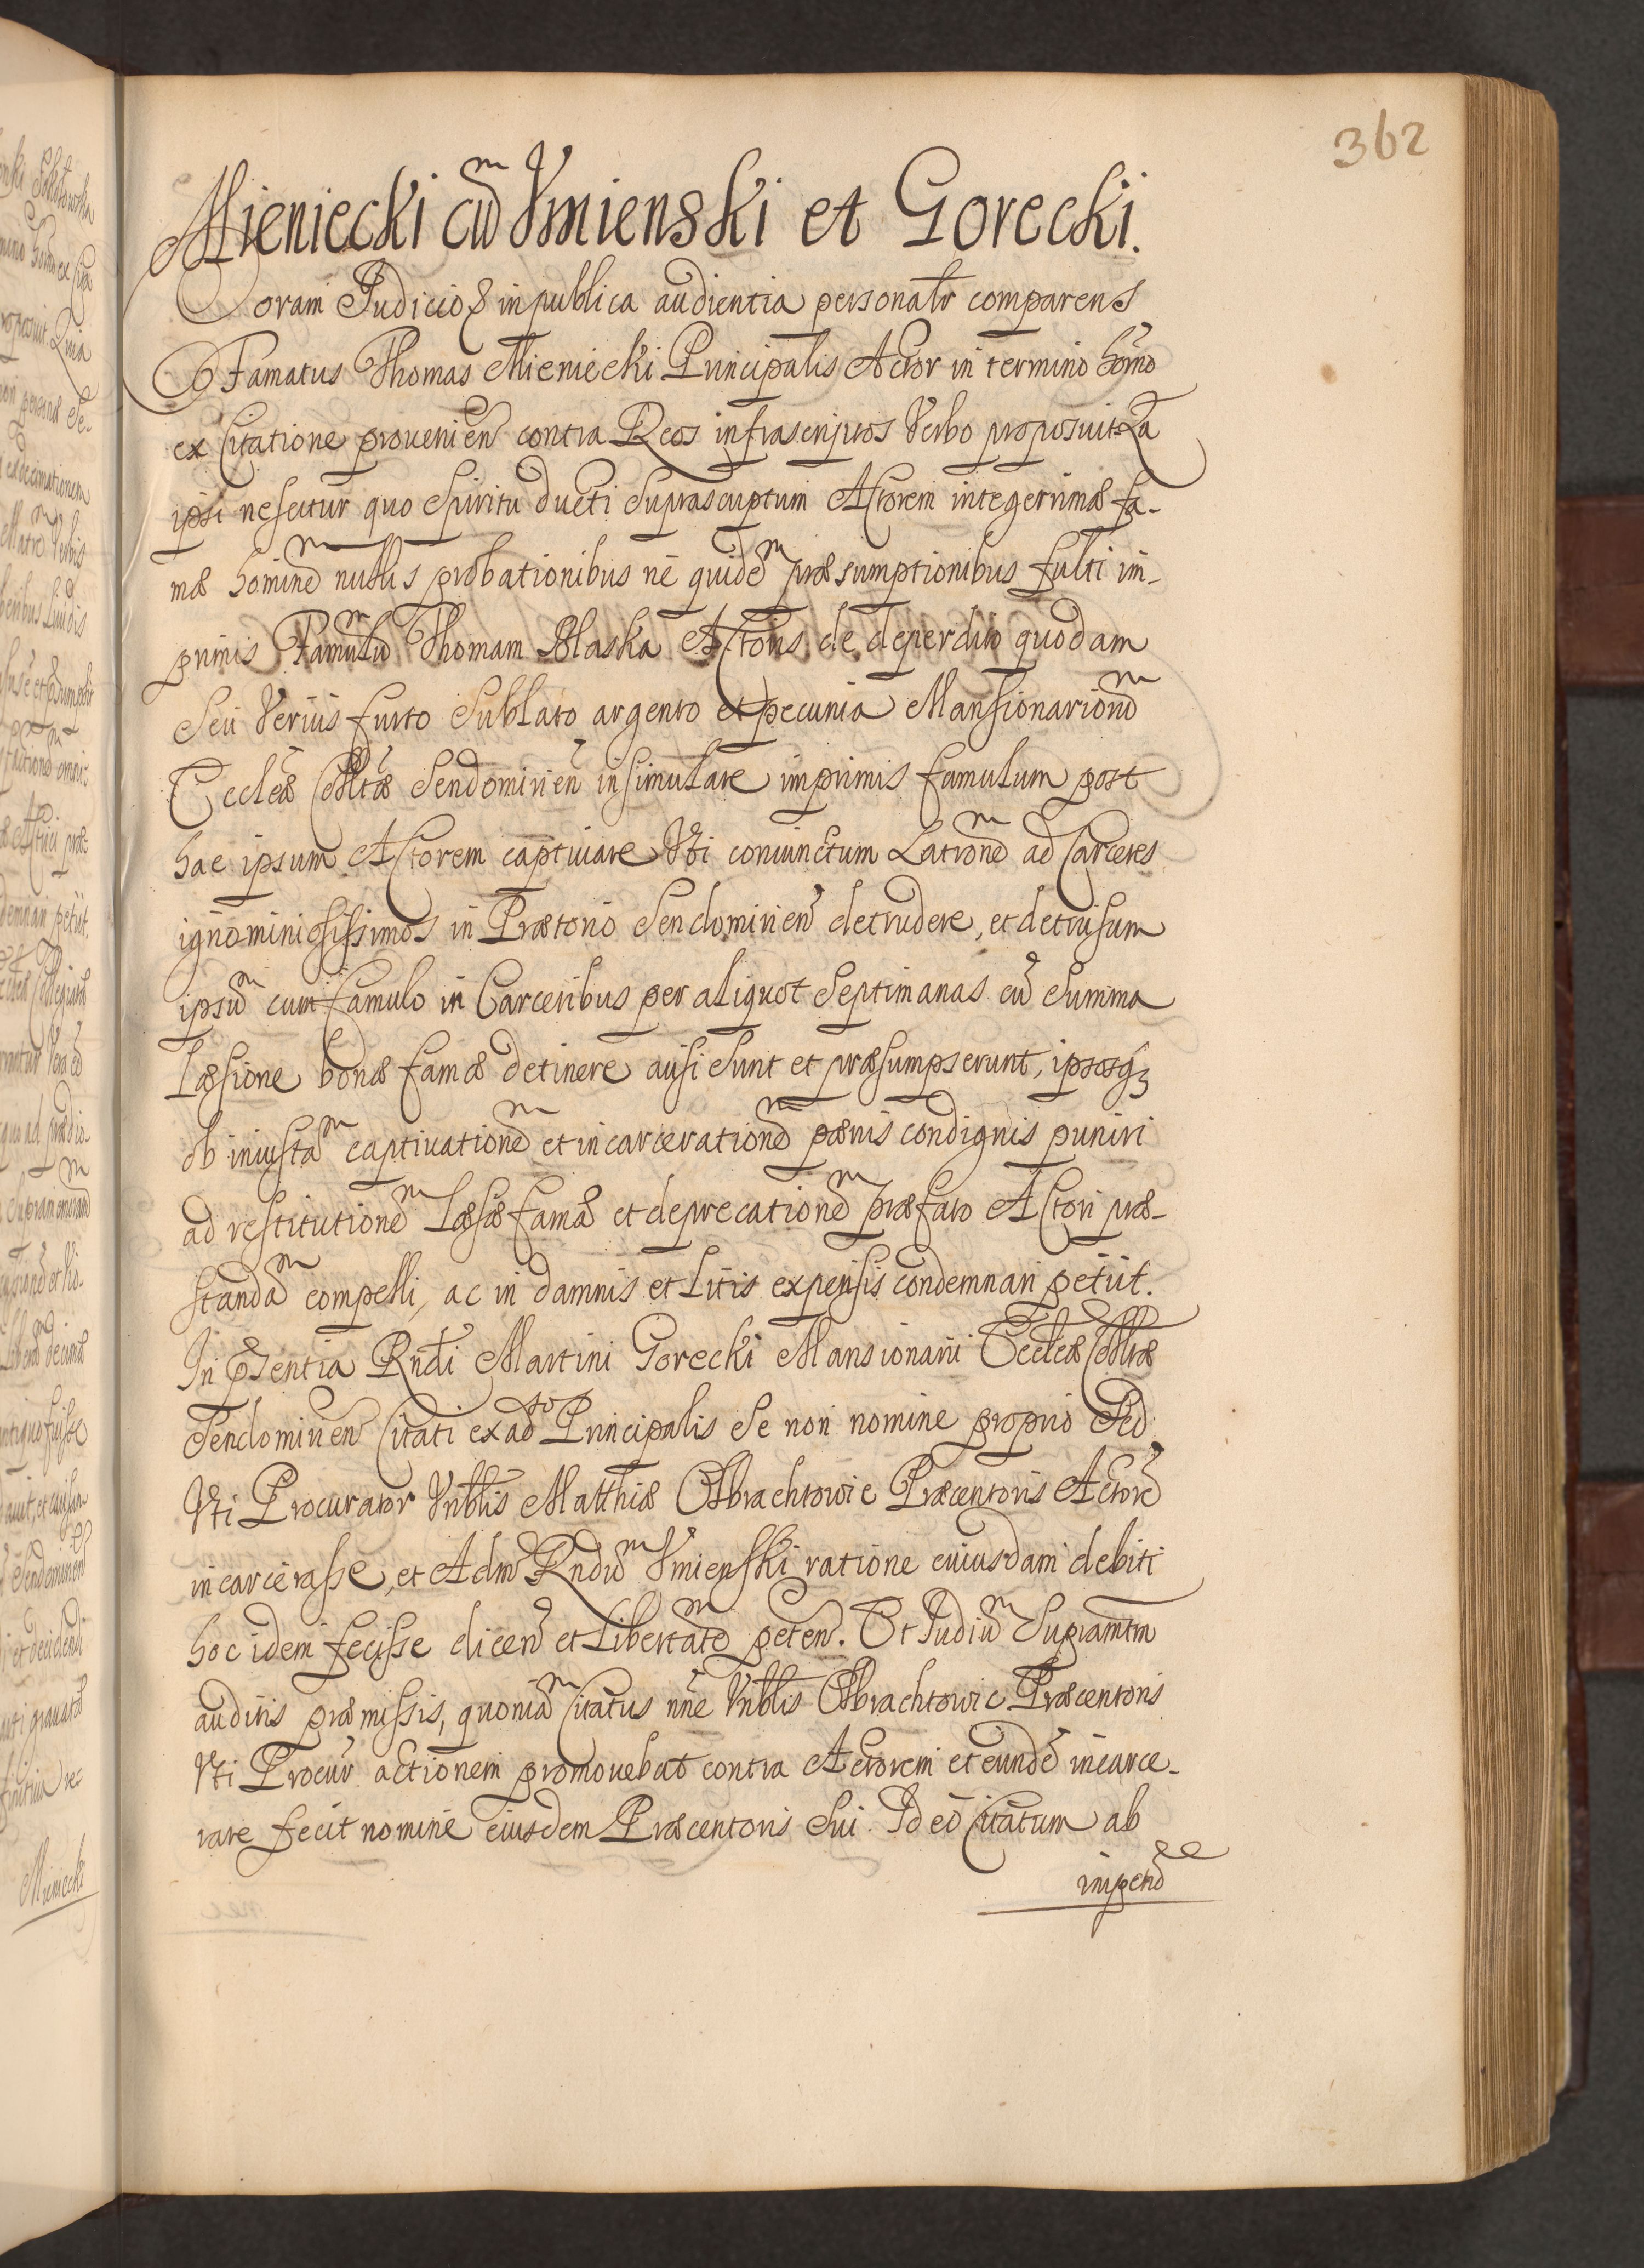 362
Mieniecki cũm Vmienski et Gorecki.
Coram Judicio & in publica audientia personalr comparens
Famatus Thomas Mieniecki Principalis Actor in termino hõrno
ex Citatione prouenieñ contra Reos infrascriptos Verbo proposuit. Qã
ipsi nescitur quo Spiritu ducti Suprascriptum Actorem integerrimæ fa-
mæ hominem nullis probationibus nē quidem præsumptionibus fulti im-
primis Famulum Thomam Blaska Actoris de deperdito quodam
Seu Verius furto Sublato argento et pecunia Mansionariorum
Ecclẽæ Colltæ Sendomirieñ insimulare imprimis famulum post
hac ipsum Actorem captiuare Vti coniunctum Latronem ad Carceres
ignominiosissimos in Prætorio Sendomirieñ detrudere, et detrusum
ipsum cum famulo in Carceribus per aliquot Septimanas cũ Summa
Læsione bonæ famæ detinere ausi Sunt et præsumpserunt, ipsosq3
ob iniustam captiuationem et incarcerationem pænis condignis puniri
ad restitutionem Læsæ famæ et deprecationem præfato Actori præ-
standam compelli, ac in damnis et Litis expensis condemnari petiit.
In pñsentia Rndi Martini Gorecki Mansionarii Ecclẽæ Colltæ
Sendomirieñ Citati ex adto Principalis Se non nomine proprio Sed
Vti Procurator Vnblis Matthiæ Olbrachtowic Præcentoris Actorẽ
incarcerasse, et Adm Rndum Vmienski ratione cuiusdam debiti
hoc idem fecisse diceñ et Libertatem peteñ. Et Judium Supramtm
auditis præmissis, quoniam Citatus nñe Vnblis Olbrachtowic Præcentoris
Vti Procur actionem promouebat contra Actorem et eundẽ incarce-
rare fecit nomine eiusdem Præcentoris Sui. Ideo Citatum ab